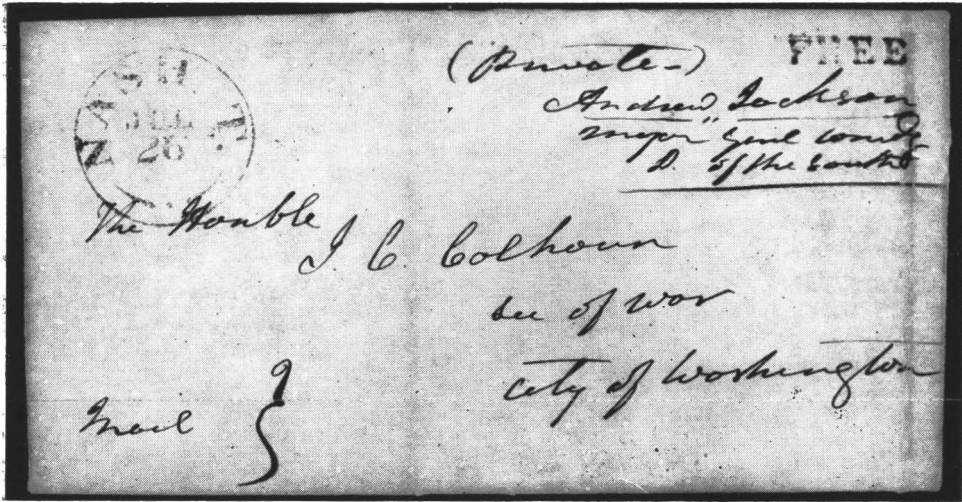 (Private—)
FREE
Andrew Jackson
major Genl comdg
D. of the South
NASH. T.
JUL
26
The Honble
J. C. Calhoun
Sec of War
city of Washington
Mail